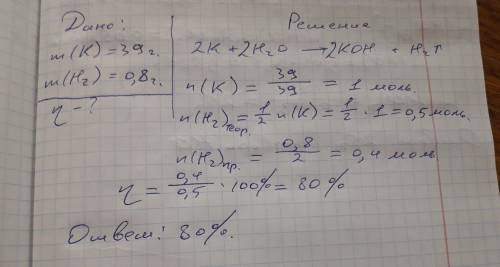 Дано:
m(K) = 39 г.
m(H₂) = 0,8 г.
η - ?
Решение
2K + 2H₂O → 2KOH + H₂↑
n(K) = 39/39 = 1 моль.
n(H₂)теор. = 1/2 n(K) = 1/2 · 1 = 0,5 моль.
n(H₂)пр. = 0,8/2 = 0,4 моль
η = 0,4/0,5 · 100% = 80%
Ответ: 80%.